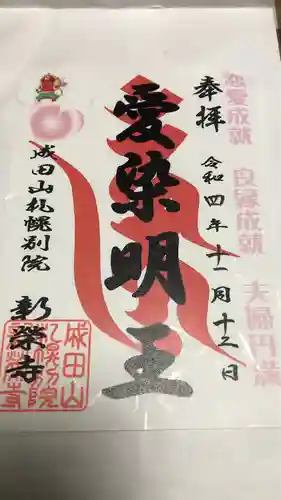 恋愛成就
良縁成就
夫婦円満
奉拝
令和四年十一月十三日
愛染明王
成田山札幌別院
新榮寺
成田山
札幌別院
新栄寺